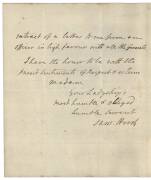 extract of a letter to me from an
officer in high favour with all the
I have the honor to be with the
Sentiments of Respect & esteem
Madam
Your Ladyship's
most humble & obliged
humble Servant